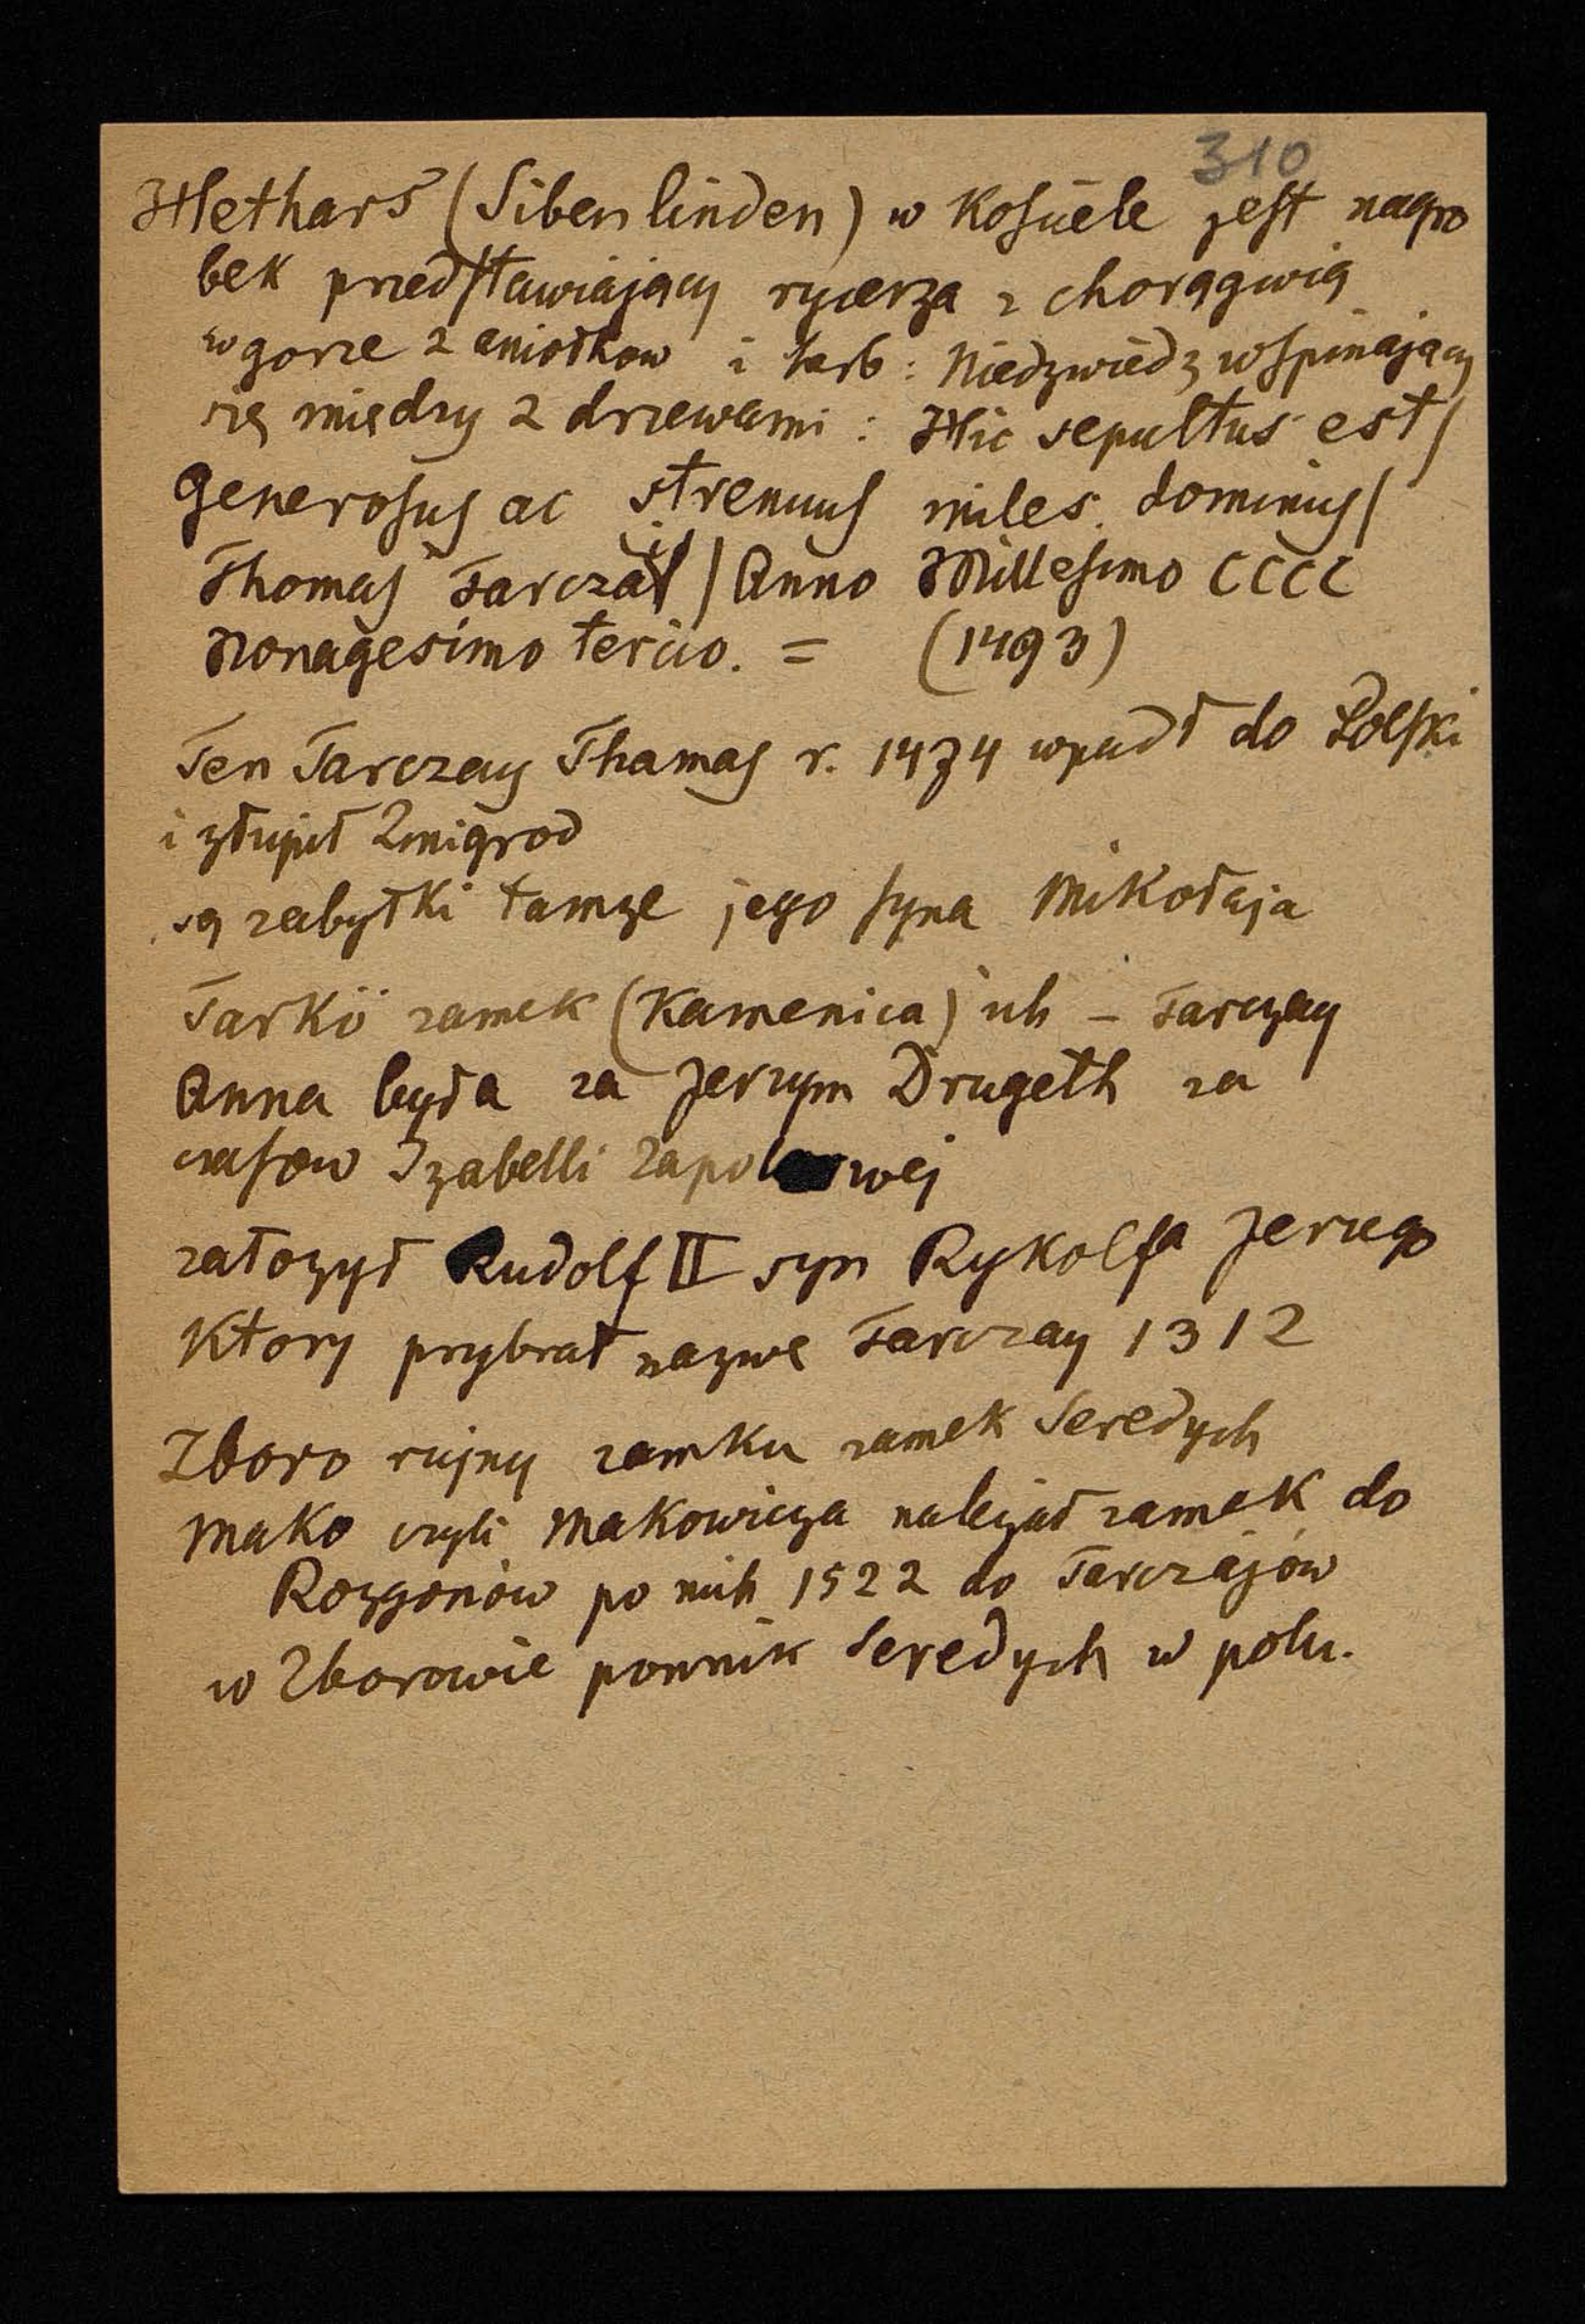 310
Hethars (Sibenlinden) w kosciele jest nagro
bek przedstawiający rycerza z chorągwią
w gorze 2 aniołkow i herb: Niedzwiedz wspinający
się między 2 drzewami: Hic sepultus est/
Generosus ac strenuus miles dominus/
Thomas Tarczai / Anno Millesimo CCCC
Nonagesimo tercio. = (1493)
Ten Tarczay Thamas r. 1474 wpadł do Polski
i złupił Zmigrod
są zabytki tamze jego syna Mikołaja
Tarkö zamek (Kamenica) ich – Tarczay
Anna była za Jerzym Drugeth za
czasow Izabelli
załozył Rudolf II syn Rykolfa Jerzego
ktory przybrał nazwe Tarczay 1312
Zboro rujny zamku zamek Seredych
Mako czyli Makowicza nalezał zamek do
Rozgonów po nich 1522 do Tarczajów
w Zborowie pomnik Seredych w polu.